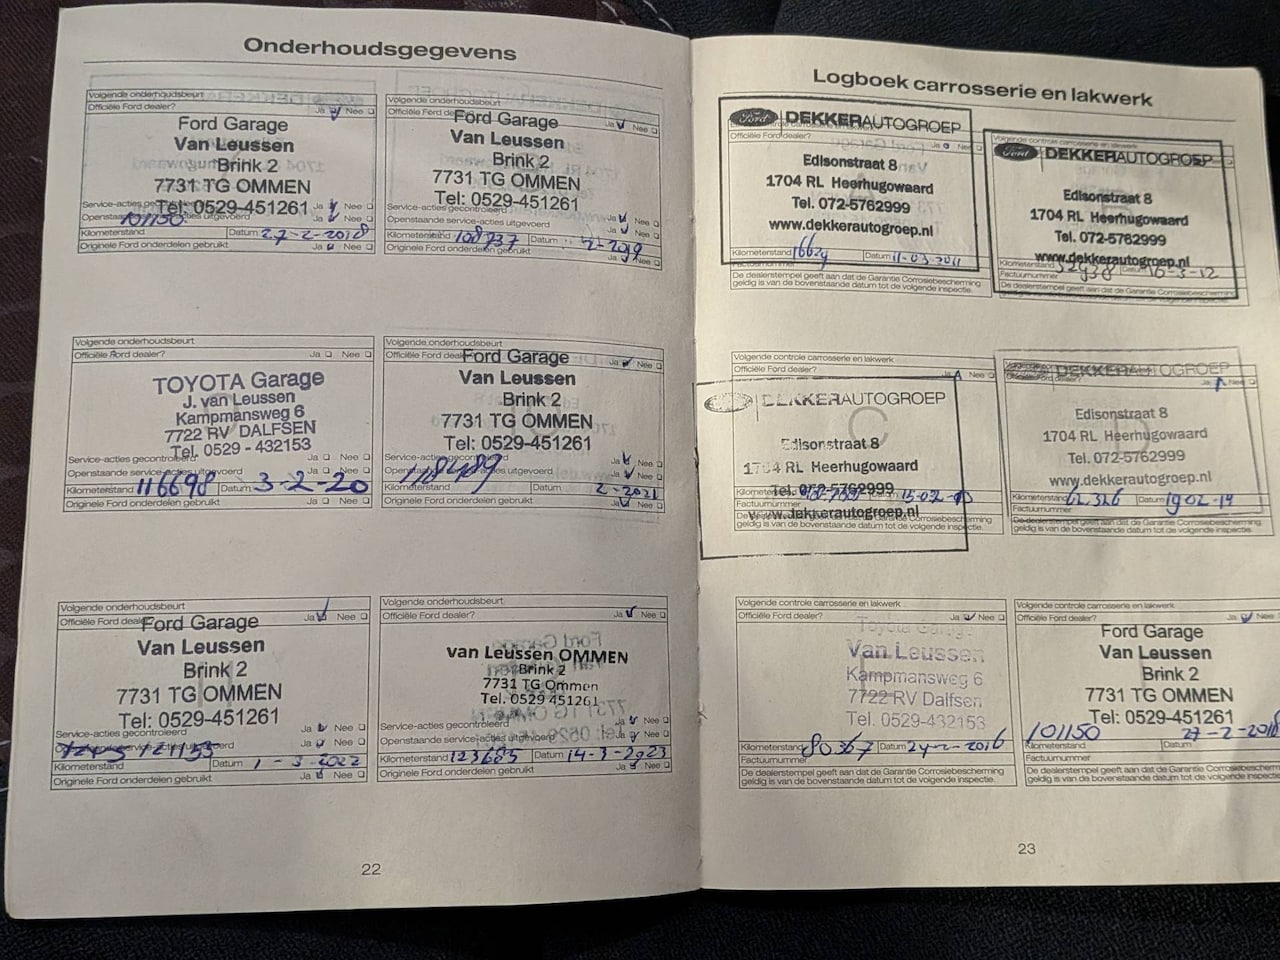 Onderhoudsgegevens
Volgende onderhoudsbeurt
Officiële Ford dealer? Ja Nee
Ford Garage
Van Leussen
Brink 2
7731 TG OMMEN
Tel: 0529-451261
Service-acties gecontroleerd Ja Nee
Openstaande service-acties uitgevoerd
101150
Kilometerstand Datum 27-2-2018
Originele Ford onderdelen gebruikt Ja Nee
Volgende onderhoudsbeurt
Officiële Ford dealer? Ja Nee
Ford Garage
Van Leussen
Brink 2
7731 TG OMMEN
Tel: 0529-451261
Service-acties gecontroleerd
Openstaande service-acties uitgevoerd Ja Nee
Kilometerstand 108737 Datum 2-2019
Originele Ford onderdelen gebruikt Ja Nee
Volgende onderhoudsbeurt
Officiële Ford dealer? Ja Nee
TOYOTA Garage
J. van Leussen
Kampmansweg 6
7722 RV DALFSEN
Tel. 0529 - 432153
Service-acties gecontroleerd Ja Nee
Openstaande service-acties uitgevoerd Ja Nee
Kilometerstand 116698 Datum 3-2-20
Originele Ford onderdelen gebruikt Ja Nee
Volgende onderhoudsbeurt
Officiële Ford dealer? Ja Nee
Ford Garage
Van Leussen
Brink 2
7731 TG OMMEN
Tel: 0529-451261
Service-acties gecontroleerd Ja Nee
Openstaande service-acties uitgevoerd Ja Nee
118489
Kilometerstand Datum 2-2021
Originele Ford onderdelen gebruikt Ja Nee
Volgende onderhoudsbeurt
Officiële Ford dealer? Ja Nee
Ford Garage
Van Leussen
Brink 2
7731 TG OMMEN
Tel: 0529-451261
Service-acties gecontroleerd Ja Nee
121153
Kilometerstand Datum 1-3-2022
Originele Ford onderdelen gebruikt Ja Nee
Volgende onderhoudsbeurt
Officiële Ford dealer? Ja Nee
van Leussen OMMEN
Brink 2
7731 TG Ommen
Tel. 0529 451261
Service-acties gecontroleerd Ja Nee
Openstaande service-acties uitgevoerd Ja Nee
Kilometerstand 123685 Datum 14-3-2023
Originele Ford onderdelen gebruikt Ja Nee
22
Logboek carrosserie en lakwerk
Ford DEKKERAUTOGROEP
Officiële Ford dealer? Ja Nee
Edisonstraat 8
1704 RL Heerhugowaard
Tel. 072-5762999
www.dekkerautogroep.nl
Kilometerstand 16624 Datum 11-03-2011
Factuurnummer
De dealerstempel geeft aan dat de Garantie Corrosiebescherming
geldig is van de bovenstaande datum tot de volgende inspectie.
Volgende controle carrosserie en lakwerk
Ford DEKKERAUTOGROEP
Edisonstraat 8
1704 RL Heerhugowaard
Tel. 072-5762999
www.dekkerautogroep.nl
Kilometerstand 32938 Datum 16-3-12
Factuurnummer
De dealerstempel geeft aan dat de Garantie Corrosiebescherming
Volgende controle carrosserie en lakwerk
Officiële Ford dealer? Ja Nee
DEKKERAUTOGROEP
C
Edisonstraat 8
1704 RL Heerhugowaard
Tel. 072-5762999
Kilometerstand Datum
Factuurnummer
www.dekkerautogroep.nl
geldig is van de bovenstaande datum tot de volgende inspectie.
DEKKERAUTOGROEP
Ja Nee
Edisonstraat 8
1704 RL Heerhugowaard
Tel. 072-5762999
www.dekkerautogroep.nl
Kilometerstand 62326 Datum 19-02-14
Factuurnummer
De dealerstempel geeft aan dat de Garantie Corrosiebescherming
geldig is van de bovenstaande datum tot de volgende inspectie.
Volgende controle carrosserie en lakwerk
Officiële Ford dealer? Ja Nee
Toyota Garage
Van Leussen
Kampmansweg 6
7722 RV Dalfsen
Tel. 0529-432153
Kilometerstand 80367 Datum 24-2-2016
Factuurnummer
De dealerstempel geeft aan dat de Garantie Corrosiebescherming
geldig is van de bovenstaande datum tot de volgende inspectie.
Volgende controle carrosserie en lakwerk
Officiële Ford dealer? Ja Nee
Ford Garage
Van Leussen
Brink 2
7731 TG OMMEN
Tel: 0529-451261
101150 27-2-2018
Kilometerstand Datum
Factuurnummer
De dealerstempel geeft aan dat de Garantie Corrosiebescherming
geldig is van de bovenstaande datum tot de volgende inspectie.
23